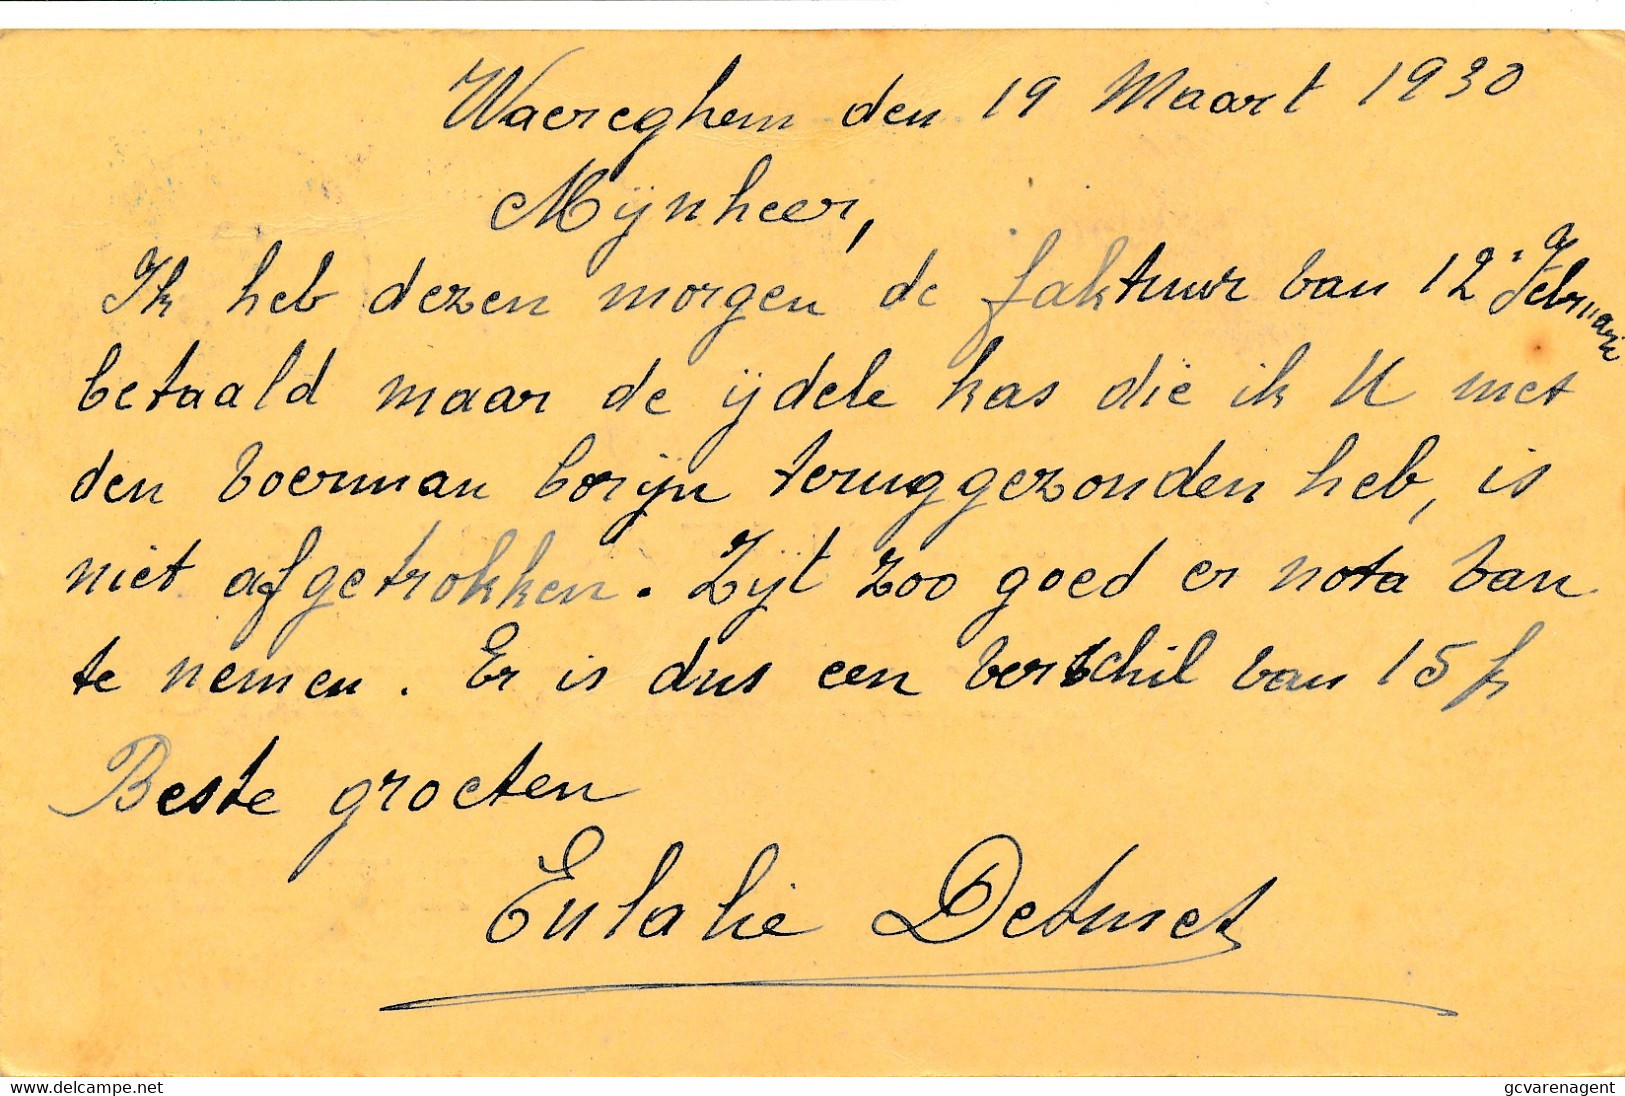 Waereghem den 19 Maart 1930
Mijnheer,
Ik heb dezen morgen de faktuur van 12 Februari
betaald maar de ijdele kas die ik U met
den voerman Corijn teruggezonden heb, is
niet afgetrokken. Zijt zoo goed er nota van
te nemen. Er is dus een verschil van 15 fr
Beste groeten
Eulalie Desmet
www.delcampe.net
gcvarenagent